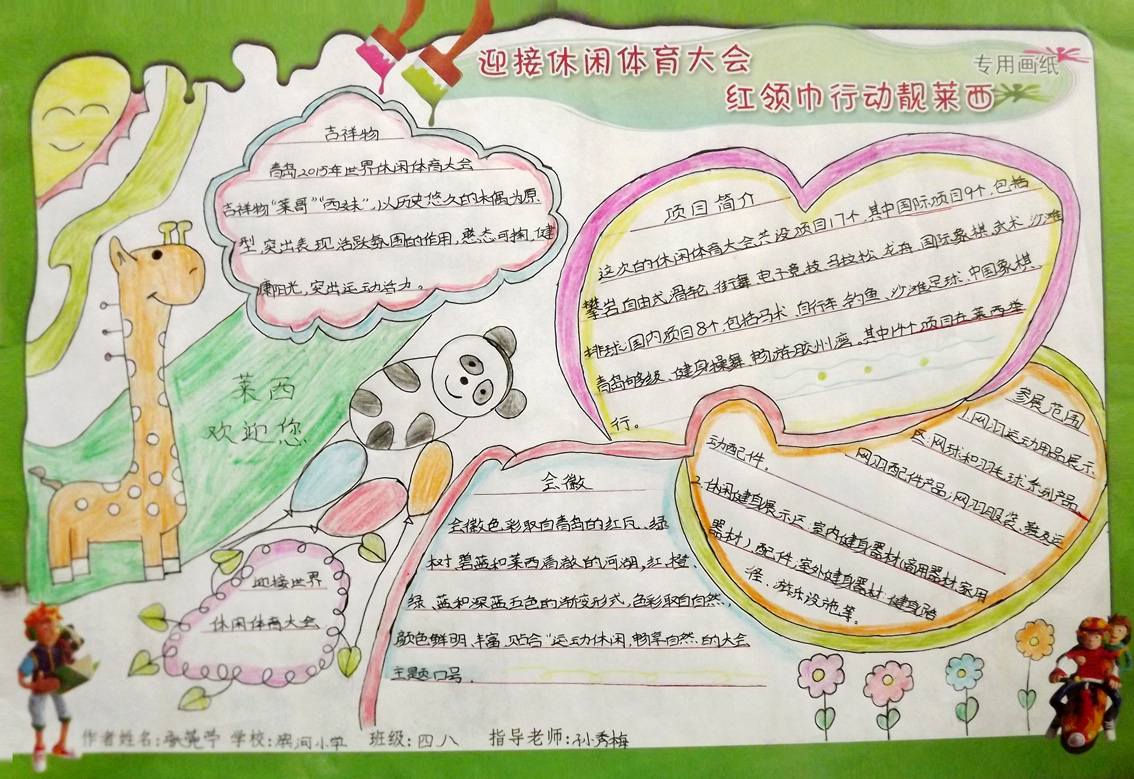 迎接休闲体育大会
红领巾行动靓莱西
专用画纸
吉祥物
青岛2015年世界休闲体育大会
吉祥物“莱哥”“西妹”，以历史悠久的木偶为原
型，突出表现活跃氛围的作用，憨态可掬，健
康阳光，突出运动活力。
项目简介
这次的休闲体育大会共设项目17个，其中国际项目9个，包括
攀岩、自由式滑轮、街舞、电子竞技、马拉松、龙舟、国际象棋、武术、沙滩
排球；国内项目8个，包括马术、自行车、钓鱼、沙滩足球、中国象棋、
青岛够级、健身操舞、畅游胶州湾。其中14个项目在莱西举
行。
莱西
欢迎您
参展范围
1.网羽运动用品展示
区：网球和羽毛球系列产品，
网羽配件产品；网羽服装、鞋及运
动配件。
2.休闲健身展示区：室内健身器材（商用器材、家用
器材）、配件，室外健身器材：健身路
径、游乐设施等。
会徽
会徽色彩取自青岛的红瓦、绿
树、碧蓝和莱西清澈的河湖，红、橙、
绿、蓝和深蓝五色的渐变形式，色彩取自自然，
颜色鲜明、丰富，贴合“运动休闲，畅享自然”的大会
主题口号。
迎接世界
休闲体育大会
作者姓名： 学校：滨河小学 班级：四、八 指导老师：孙秀梅